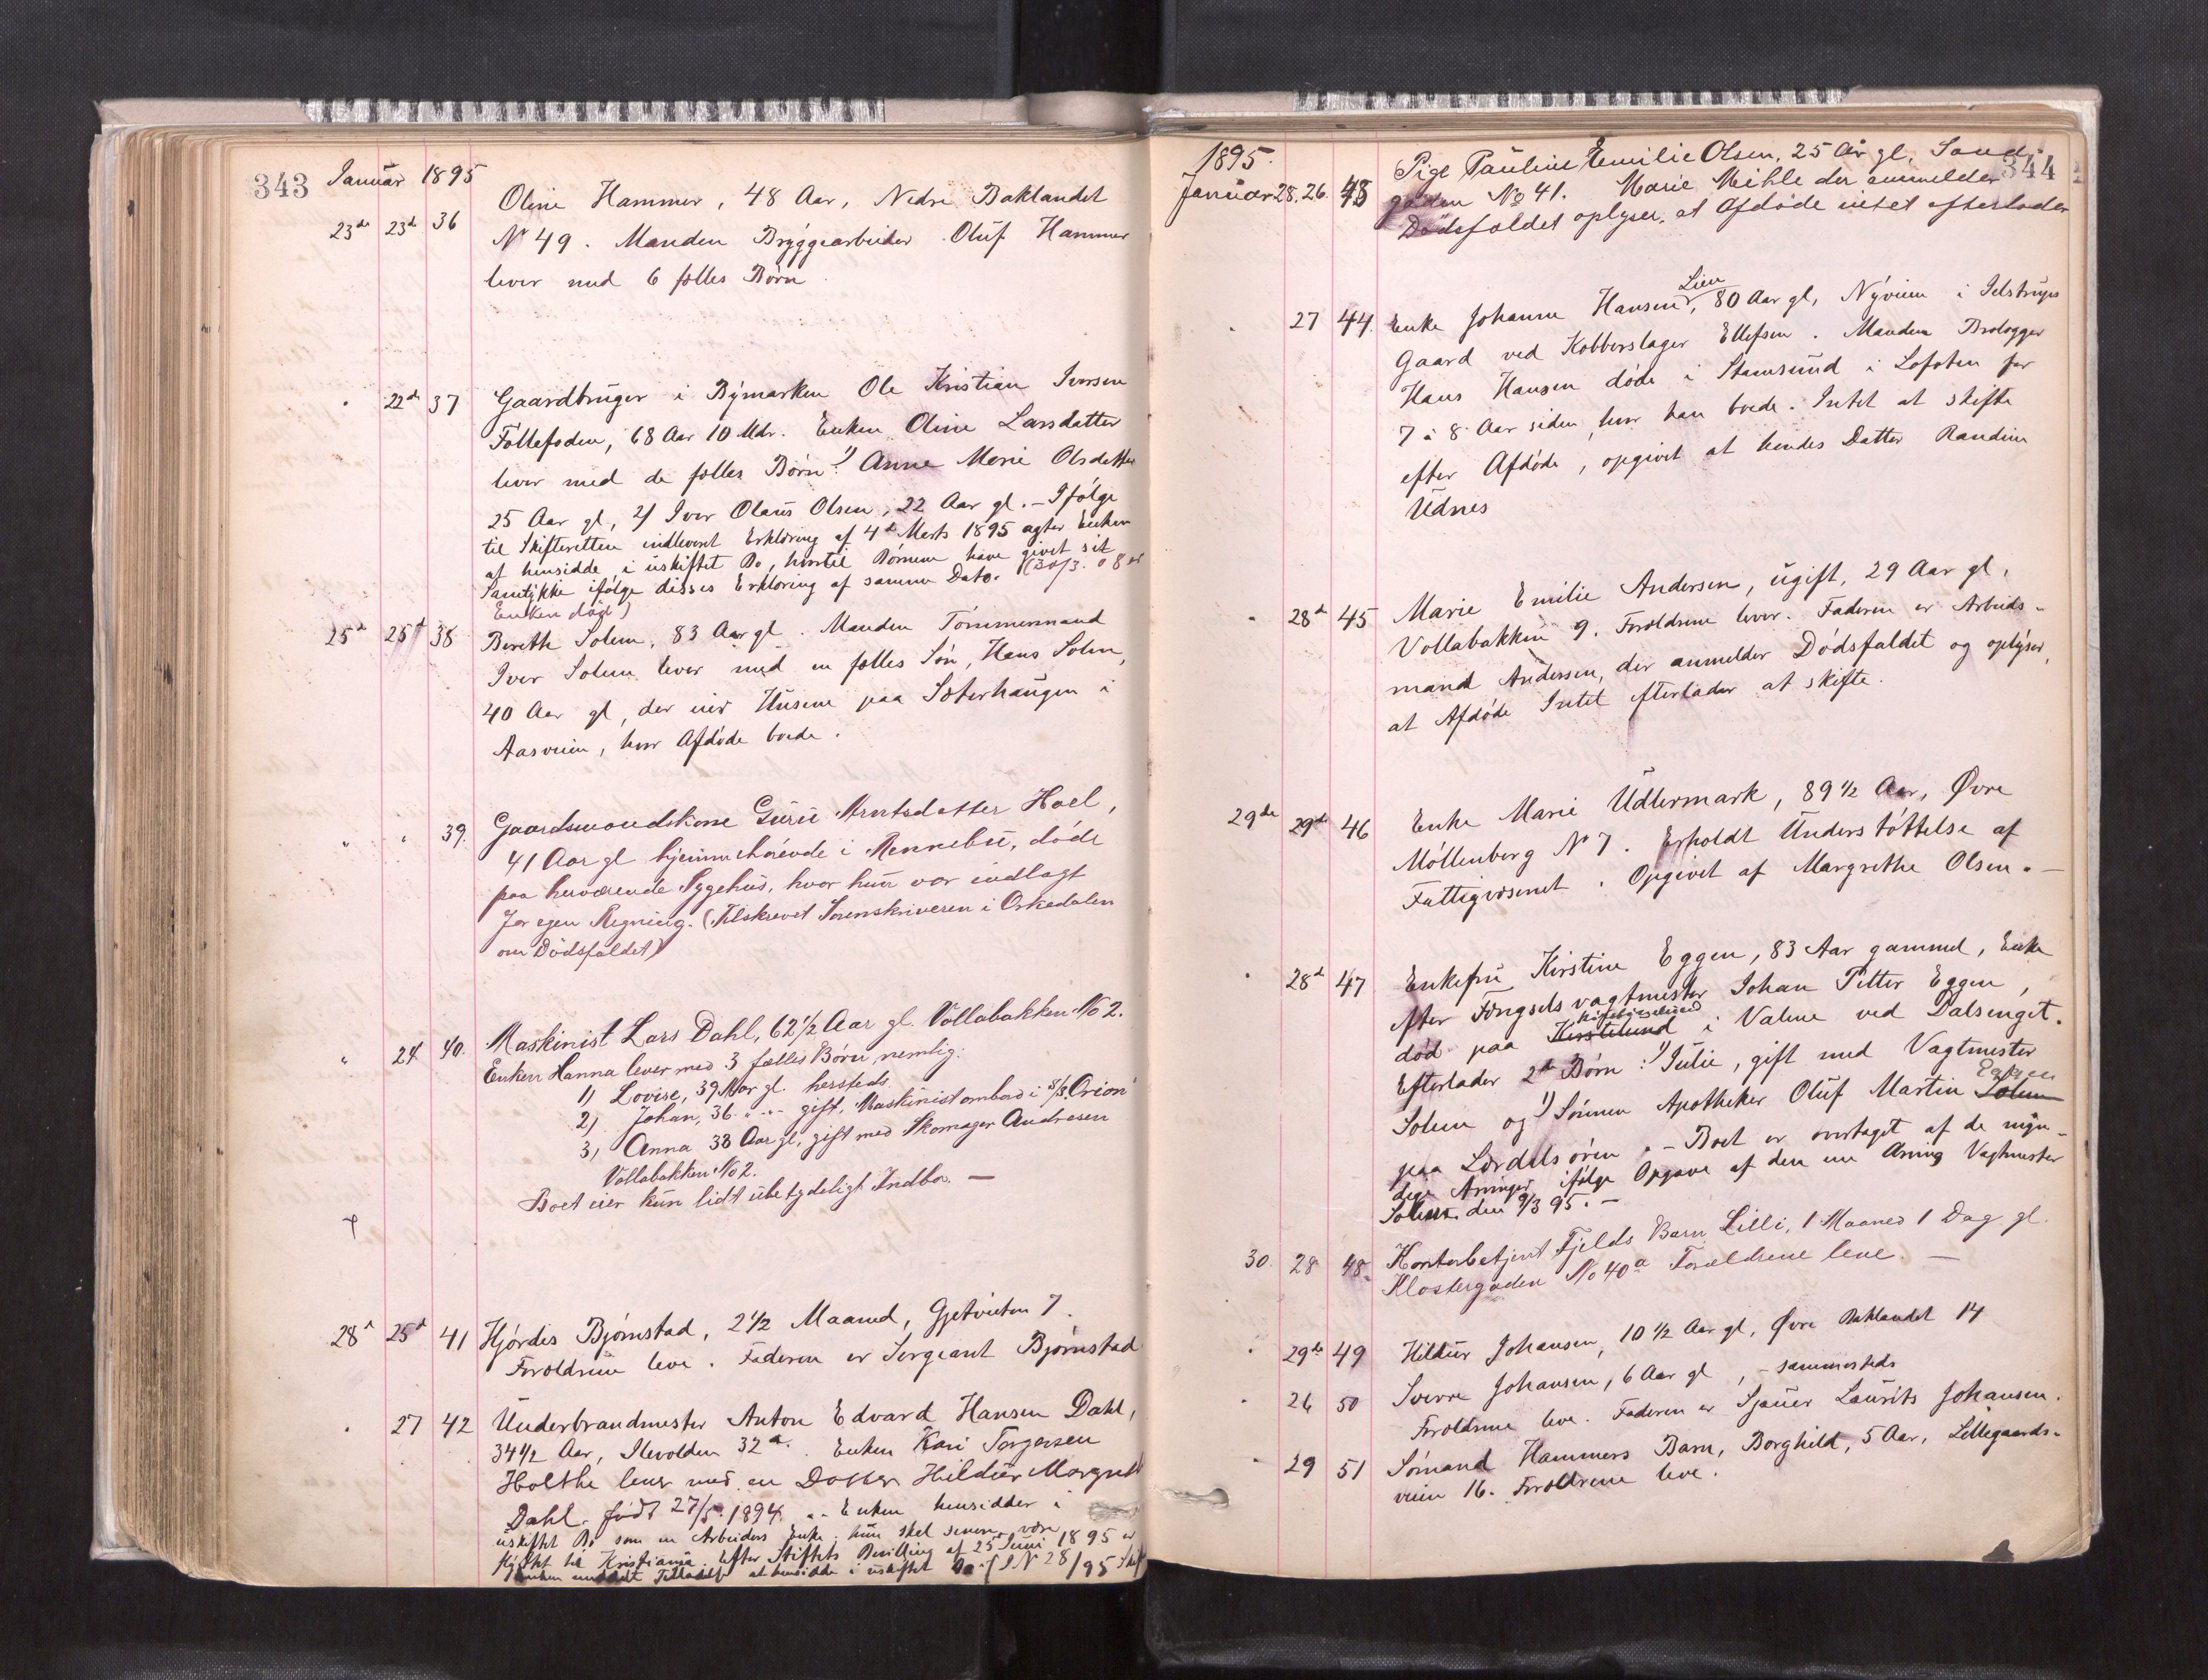 343
Januar 1895
23de 23de 36 Oline Hammer, 48 Aar, Nedre Baklandet
No 49. Manden Bryggearbeider Oluf Hammer
lever med 6 fælles Børn.
" 22de 37 Gaardbruger i Bymarken Ole Kristian Iversen
Follefoden, 68 Aar 10 Mdr. Enken Oline Larsdatter
lever med de fælles Børn: 1) Anne Marie Olsdatter
25 Aar gl, 2) Iver Olaus Olsen, 22 Aar gl. - Ifølge
til Skifteretten indleveret Erklæring af 4de Marts 1895 agter Enken
at hensidde i uskiftet Bo, hvortil Børnene have givet sit
Samtykke ifølge disses Erklæring af samme Dato. (30/3. 08 er
Enken død)
25de 25de 38 Bereth Solem, 83 Aar gl. Manden Tømmermand
Iver Solem lever med en fælles Søn, Hans Solem,
40 Aar gl, der eier Husene paa Sæterhaugen i
Aasveien, hvor Afdøde boede.
" " 39. Gaardsmandskone Guru Arntsdatter Hoel,
41 Aar gl hjemmehørende i Rennebu, døde
paa herværende Sygehus, hvor hun var indlagt
for egen Regning. (Tilskrevet Sorenskriveren i Orkedalen
om Dødsfaldet)
" 24 40. Maskinist Lars Dahl, 62 1/2 Aar gl. Vollabakken No 2.
Enken Hanna lever med 3 fælles Børn, nemlig:
1) Lovise, 39 Aar gl. hersteds
2) Johan, 36 " " gift, Maskinist ombord i S/S. "Orion"
3) Anna 33 Aar gl, gift med Skomager Andresen
Vollabakken No 2.
Boet eier kun lidt ubetydeligt Indbo. —
28de 25de 41 Hjørdis Bjørnstad, 2 1/2 Maaned, Gjetveiten 7.
Forældrene leve. Faderen er Sergeant Bjørnstad
" 27 42 Underbrandmester Anton Edvard Hansen Dahl,
34 1/2 Aar, Ilevolden 32a. Enken Kari Torgersen
Holthe lever med en Datter Hildur Margret
Dahl. født 27/5. 1894. - Enken hensidder i
uskiftet Bo som en Arbeiders Enke. hun skal senere være
flyttet til Kristiania. Efter Stiftets Bevilling af 25de Juni 1895 er
Enken meddelt Tilladelse at hensidde i uskiftet Bo. (IN 28/95
344
1895.
Januar 28. 26. 43 Pige Pauline Emilie Olsen, 25 Aar gl, Sand-
gaden No 41. Marie Mihle der anmelder
Dødsfaldet oplyser, at Afdøde intet efterlader
" 27 44. Enke Johanne Hansen Lien, 80 Aar gl, Nyveien i Jelstrups
Gaard ved Kobberslager Ellefsen. Manden Brolægger
Hans Hansen døde i Stamsund i Lofoten for
7 à 8 Aar siden, hvor han boede. Intet at skifte
efter Afdøde, opgivet at hendes Datter Randine
Udnes
" 28de 45 Marie Emilie Andersen, ugift, 29 Aar gl,
Vollabakken 9. Forældrene lever. Faderen er Arbeids-
mand Andersen, der anmelder Dødsfaldet og oplyser,
at Afdøde Intet efterlader at skifte.
29de 29de 46 Enke Marie Udlermark, 89 1/2 Aar, Øvre
Møllenberg No 7. Erholdt Understøttelse af
Fattigvæsenet. Opgivet af Margrethe Olsen. —
" 28de 47 Enkefru Kirstine Eggen, 83 Aar gammel, Enke
efter Fængselsvagtmester Johan Petter Eggen,
død paa i Valene ved Dalsenget.
Efterlader 2de Børn: 1) Julie, gift med Vagtmester
Solem og 2) Sønnen Apotheker Oluf Martin Solem Eggen
paa Lærdalsøren. - Boet er overtaget af de myn-
dige Arvinger ifølge Opgave af den ene Arving Vagtmester
Solem den 9/3 95. -
30. 28 48. Kontorbetjent Fjelds Barn Lilli, 1 Maaned 1 Dag gl.
Klostergaden No 40a Forældrene leve. —
" 29de 49 Hildur Johansen, 10 1/2 Aar gl, Øvre Baklandet 14
" 26 50 Sverre Johansen, 6 Aar gl, - sammesteds
Forældrene leve. Faderen er Sjauer Laurits Johansen.
" 29 51 Sømand Hammers Barn, Borghild, 5 Aar, Lillegaards-
veien 16. Forældrene leve.